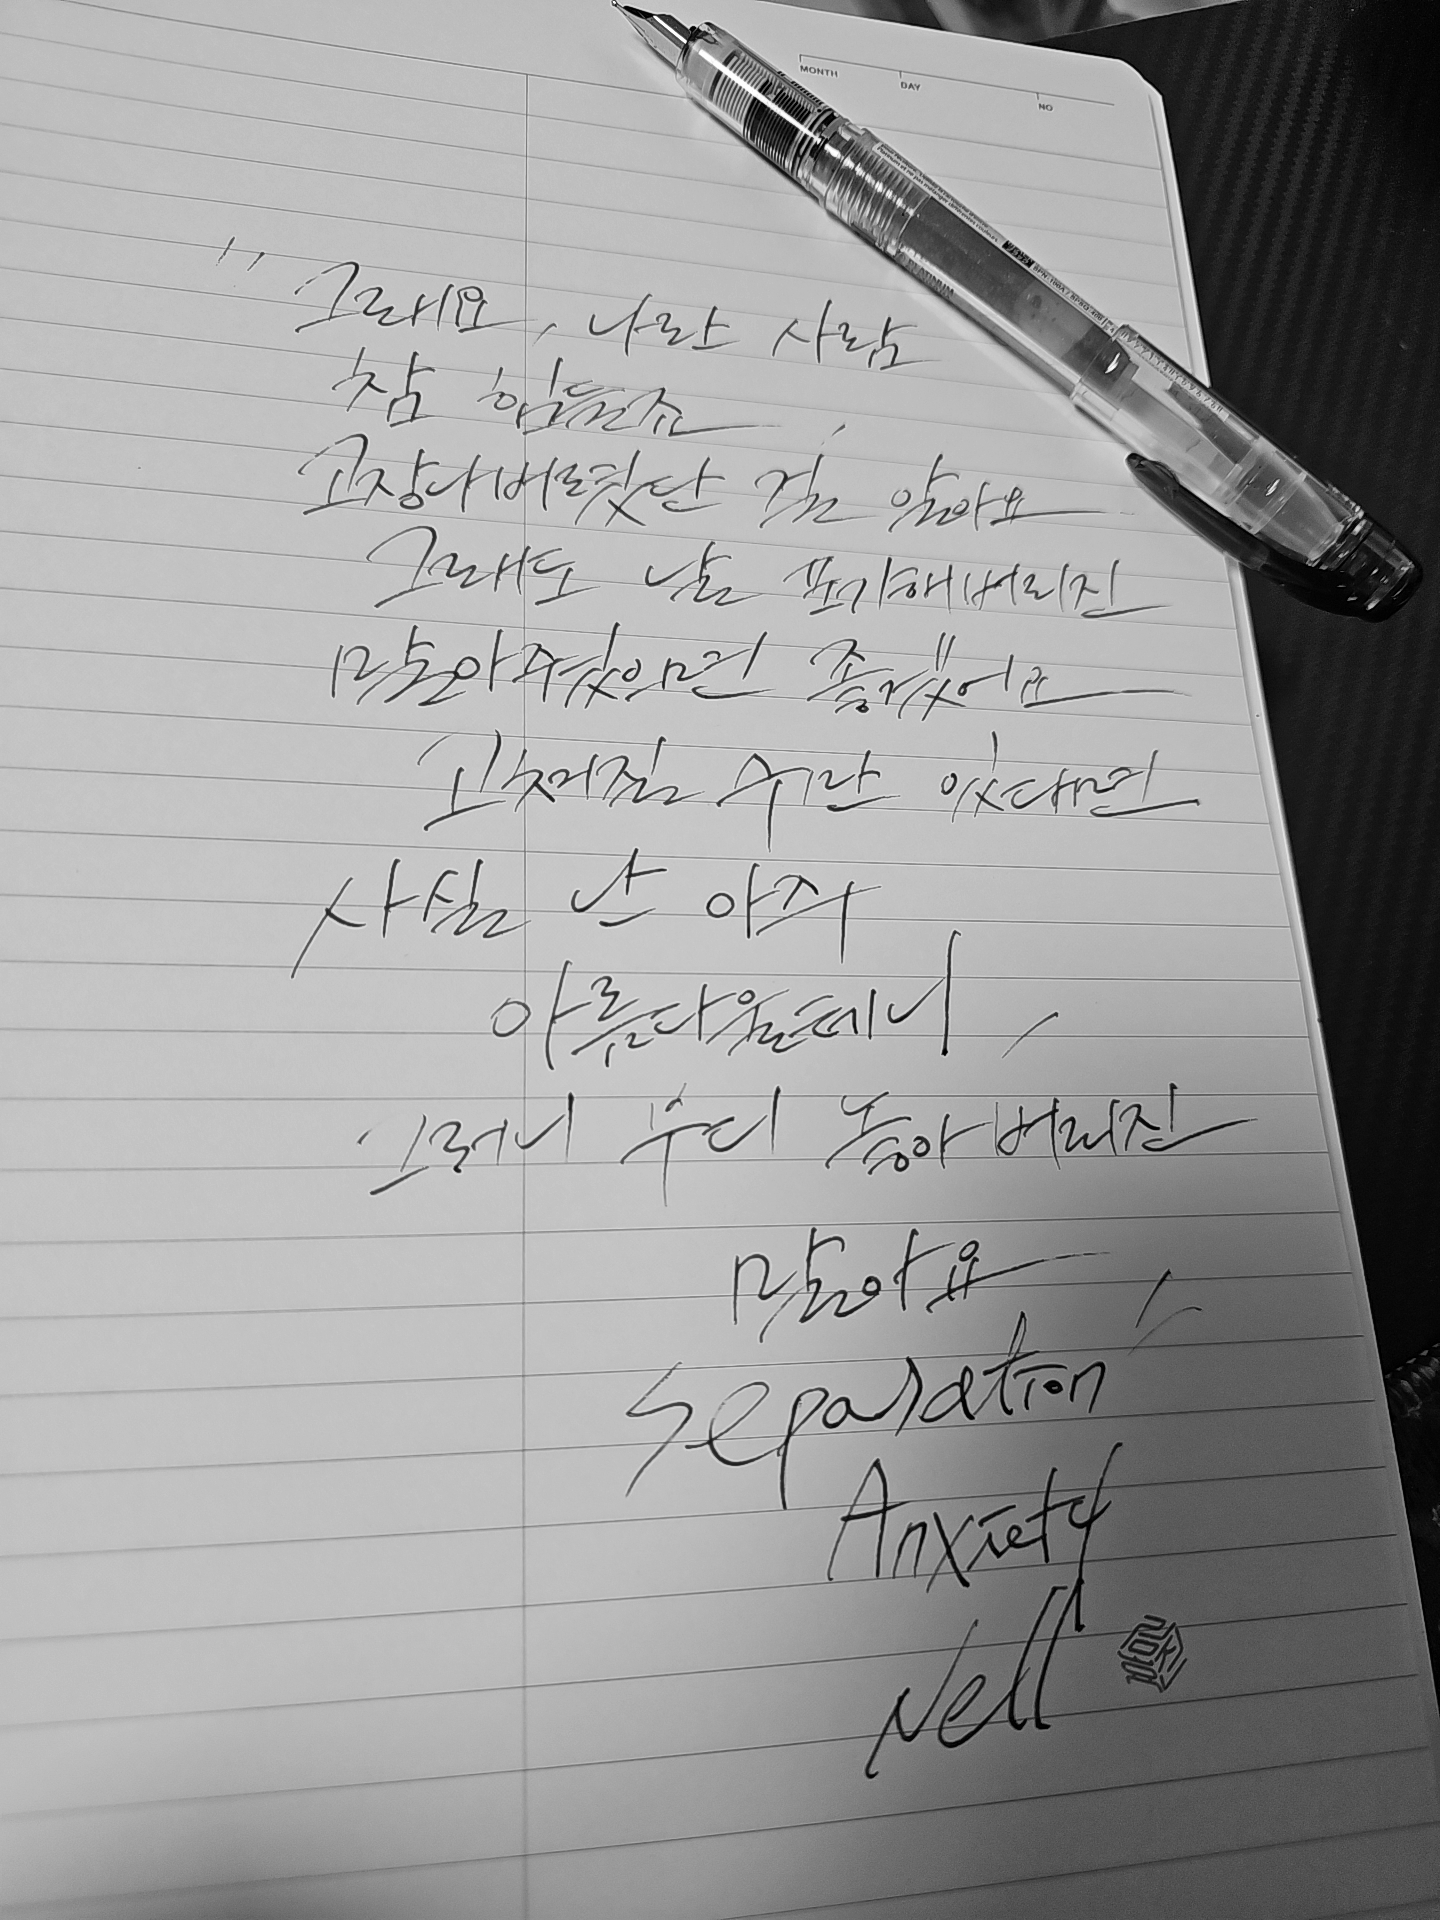 MONTH
DAY
NO
PLATINUM
"그래요, 나란 사람
참 힘든죠
고장나버렸단 걸 알아요
그래도 날 포기해버리진
말아줬으면 좋겠어요
고쳐질 수만 있다면
사실 난 아주
아름다울테니,
그러니 부디 놓아버리진
말아요"
Separation
Anxiety
Nell